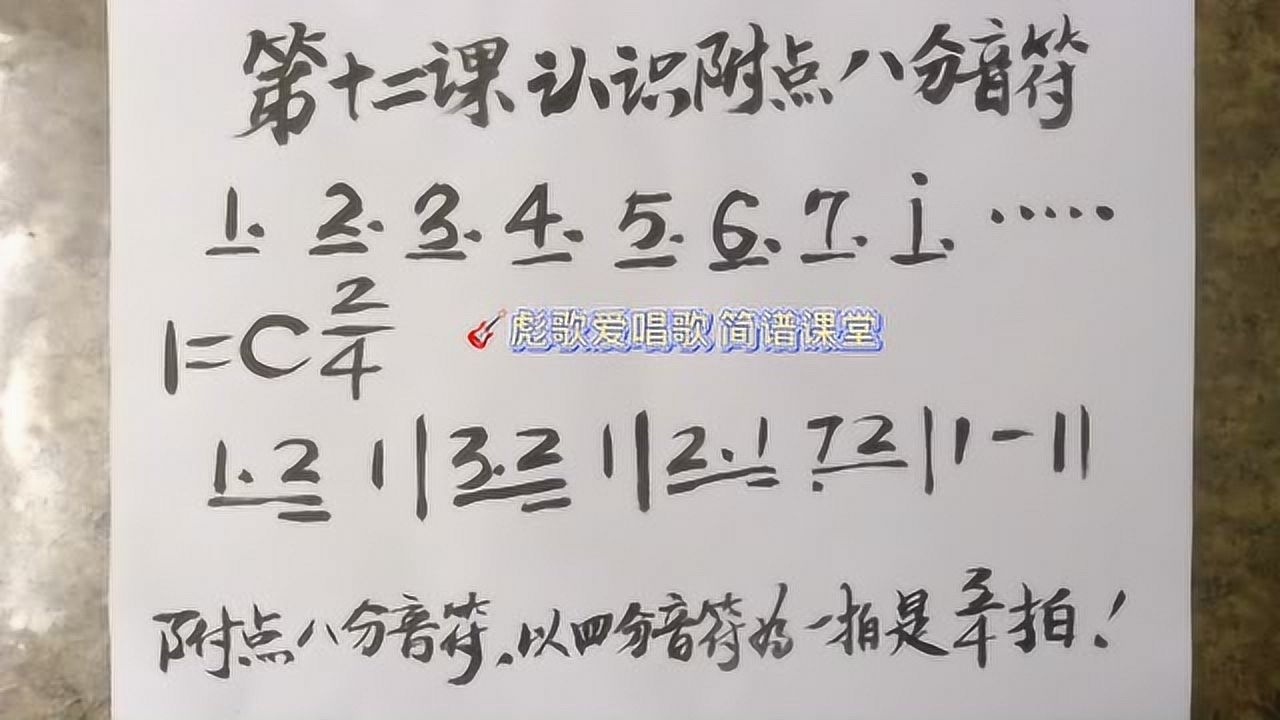 第十二课 认识附点八分音符
1. 2. 3. 4. 5. 6. 7. i. ·····
1=C 2/4
彪歌爱唱歌 简谱课堂
1. 2 1 | 3. 2 1 | 2. 1 7 2 | 1 - ||
附点八分音符,以四分音符为一拍是 3/4 拍!